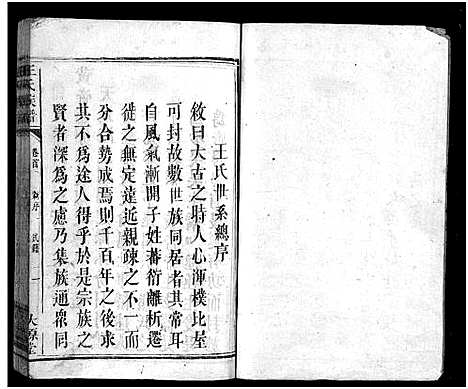 王氏世系總序
敘曰大古之時人心渾樸比屋
可封故數世族同居者其常耳
自風氣漸開子姓蕃衍離析遷
徙之無定遠近親疎之不一而
分合勢成焉則千百年之後求
其不為途人得乎於是宗族之
賢者深為之慮乃集族通衆同
王氏族譜
卷首
一
太原堂